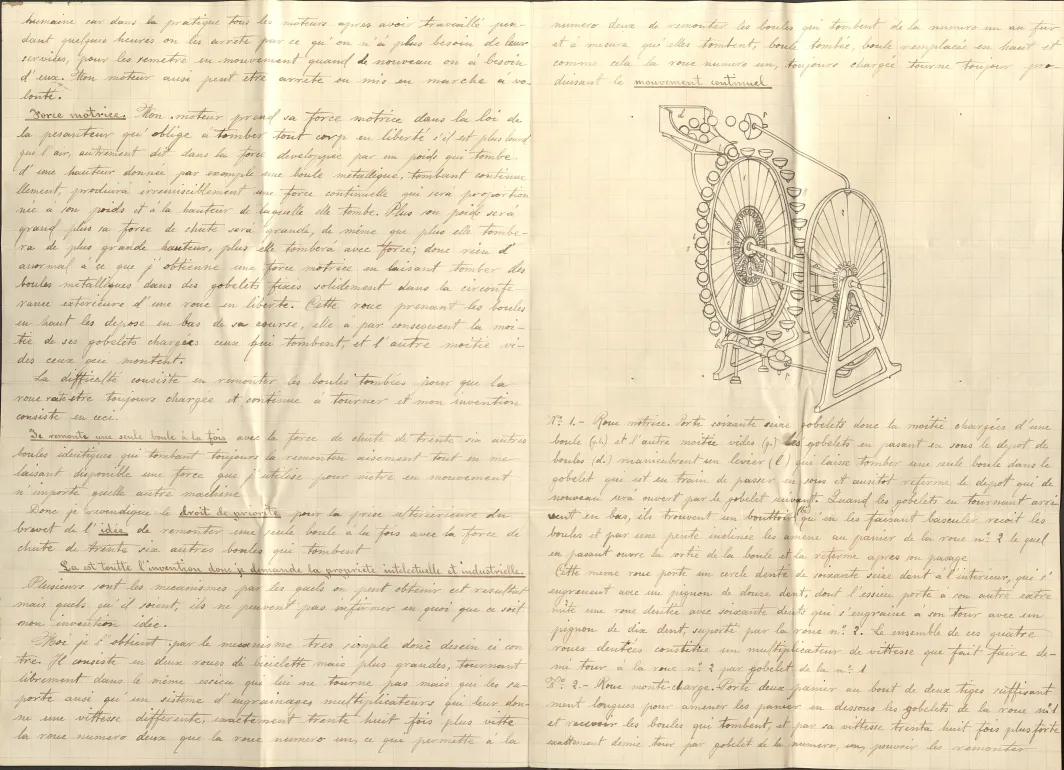 humaine car dans la pratique tous les moteurs apres avoir travaillé pen-
dant quelques heures on les arrete par ce qu'on n'á plus besoin de leur
servides, pour les remetre en mouvement quand de nouveau on á besoin
d'eux. Mon moteur ausi peut etre arreté en mis en marche á vo-
lonté.
Force motrice. Mon moteur prend sa force motrice dans la loi de
la pesanteur qu'oblige a tomber tout corp en liberté s'il est plus lourd
que l'air, autrement dit dans la force developpée par un poids qui tombe
d'une hauteur donnée par exemple une boule metallique, tombant continue
llement, produirá irremisiblement une force continuelle qui será proportion
née á son poids et á la hauteur de laquelle elle tombe. Plus son poids será
grand plus sa force de chute será grande, de même que plus elle tombe-
ra de plus grande hauteur, plus elle tomberá avec force; donc rien d'
anormal á ce que j'obtienne une force motrice en laisant tomber des
boules metalliques dans des gobelets fixés solidement dans la circonfe
rance exterieure d'une roue en liberté. Cette roue prenant les boules
en haut les depose en bas de sa course, elle á par consequent la moi-
tié de ses gobelets chargées ceux qui tombent, et l'autre moitié vi-
des ceux que montent.
La difficulté consiste en remonter les boules tombées pour que la
roue etre toujours chargée et continue á tourner et mon invention
consiste en ceci.
Je remonte une seule boule á la fois avec la force de chute de trente six autres
boules identiques qui tombant toujours la remonten aisement tout en me
laisant disponible une force que j'utilise pour metre en mouvement
n'importe quelle autre machine
Donc je revendique le droit de priorité pour la prise ulterieure du
brevet de l'idée de remonter une seule boule á la fois avec la force de
chute de trente six autres boules que tombent
La est toutte l'invention donc je demande la propriete intelectuelle et industrielle.
Plusieurs sont les mecanismes par les quels on peut obtenir cet resultat
mais quels qu'il soient, ils ne peuvent pas infirmer en quoi que ce soit
mon invention idee.
Moi je l'obtient par le mecanisme tres simple doné desein ci con
tre. Il consiste en deux roues de bicielette mais plus grandes, tournant
librement dans le même essieu qui lui ne tourne pas mais qui les su-
porte ansi qu'un sisteme d'engrainages multiplicateurs qui leur don-
ne une vittesse differente, exactement trente huit fois plus vitte
la roue numero deux que la roue numero un, ce que permette á la
numero deux de remonter les boules qui tombent de la numero un au fur
et á mesura qu'elles tombent, boule tombée, boule remplacée en haut et
comme cela la roue numero un, toujours chargée tourne toujour pro
duisant le mouvement continuel
Nº 1.- Roue motrice. Porte soixante seize gobelets donc la moitié chargées d'une
boule (g.b.) et l'autre moitée vides (g.) les gobelets en pasant en sous le depot de
boules (d.) manieubrent un levier (l) qui laisse tomber une seule boule dans le
gobelet qui est en train de passer en sous et ausitot referme le depot qui de
nouveau será ouvert par le gobelet suivant. Quand les gobelets en tournant arri
vent en bas, ils trouvent un bouttoir qu'en les faisant basculer recoit les
boules et par une pente inclinée les améne au panier de la roue nº 2 le quel
en pasant ouvre la sortie de la boule et la réforme apres son pasage
Cette meme roue porte un cercle denté de soixante seize dent á l'interieur, que s'
engrenent avec un pignon de douze dent, dont l'essieu porte a son autre extre
mité une roue dentée avec soixante dents qui s'engraine a son tour avec un
pignon de dix dent, suporté par la roue nº 2. Le ensemble de ces quatre
roues dentées constitue un multiplicateur de vittesse que fait faire de-
mi tour á la roue nº 2 par gobelet de la nº 1
Nº 2.- Roue monte-charge. Porte deux panier au bout de deux tiges suffisant
ment longues pour amener les panier en dessous les gobelets de la roue nº 1
et recevoir les boules qui tombent, et par sa vittesse trenta huit fois plus forte
exattement demie tour par gobelet de la numero, un, pouvoir les remonter